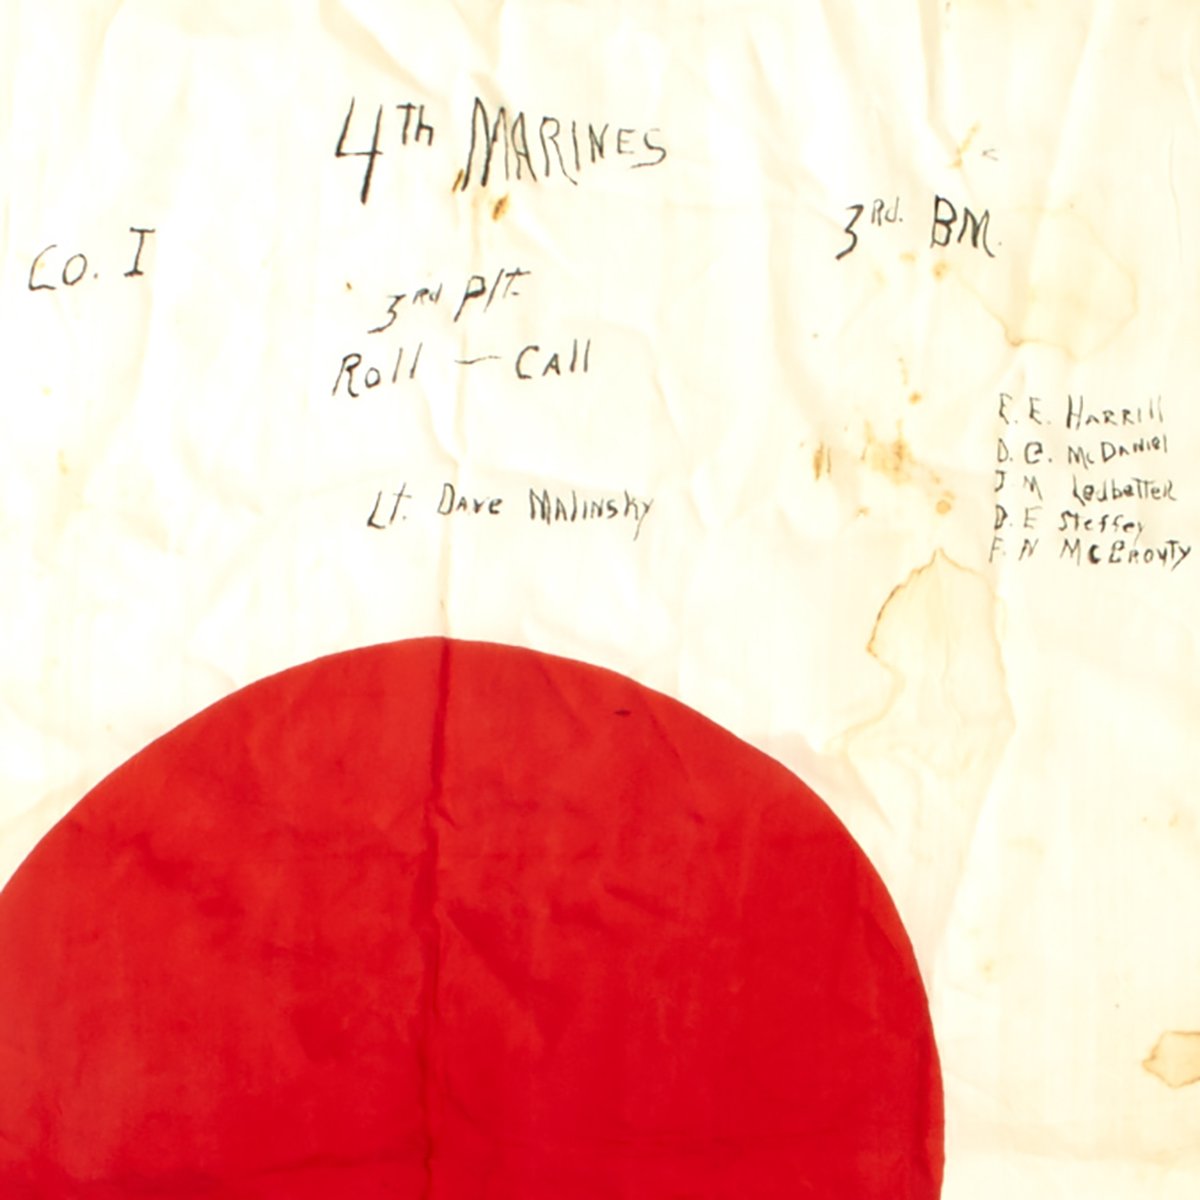 4Th MARINES
3Rd. BM.
Co. I
3Rd Plt.
Roll — Call
E. E. HARRIll
D. C. McDaniel
J M Ledbetter
Lt. Dave Malinsky
D. E Steffey
F. N